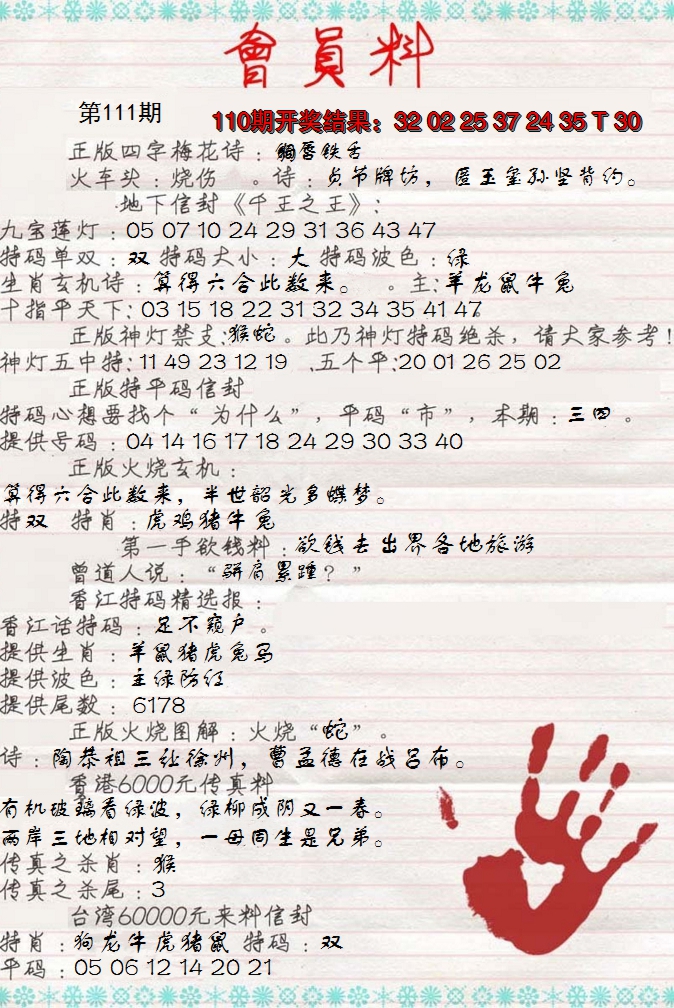 會員料
第111期
110期开奖结果：32 02 25 37 24 35 T 30
正版四字梅花诗：铜唇铁舌
火车头：烧伤 。诗：贞节牌坊，匿玉玺孙坚背约。
地下信封《千王之王》：
九宝莲灯：05 07 10 24 29 31 36 43 47
特码单双：双 特码大小：大 特码波色：绿
生肖玄机诗：算得六合此数来。 。主：羊龙鼠牛兔
十指平天下：03 15 18 22 31 32 34 35 41 47
正版神灯禁支：猴蛇。此乃神灯特码绝杀，请大家参考！
神灯五中特：11 49 23 12 19 .五个平：20 01 26 25 02
正版特平码信封
特码心想要找个“为什么”，平码“市”，本期：三四。
提供号码：04 14 16 17 18 24 29 30 33 40
正版火烧玄机：
算得六合此数来，半世韶光多蝶梦。
特双 特肖：虎鸡猪牛兔
第一手欲钱料：欲钱去出界各地旅游
曾道人说：“骈肩累踵？”
香江特码精选报：
香江话特码：足不窥户。
提供生肖：羊鼠猪虎兔马
提供波色：主绿防红
提供尾数：6178
正版火烧图解：火烧“蛇”。
诗：陶恭祖三让徐州，曹孟德在战吕布。
香港6000元传真料
有机玻璃看绿波，绿柳成阴又一春。
两岸三地相对望，一母同生是兄弟。
传真之杀肖：猴
传真之杀尾：3
台湾60000元来料信封
特肖：狗龙牛虎猪鼠 特码：双
平码：05 06 12 14 20 21